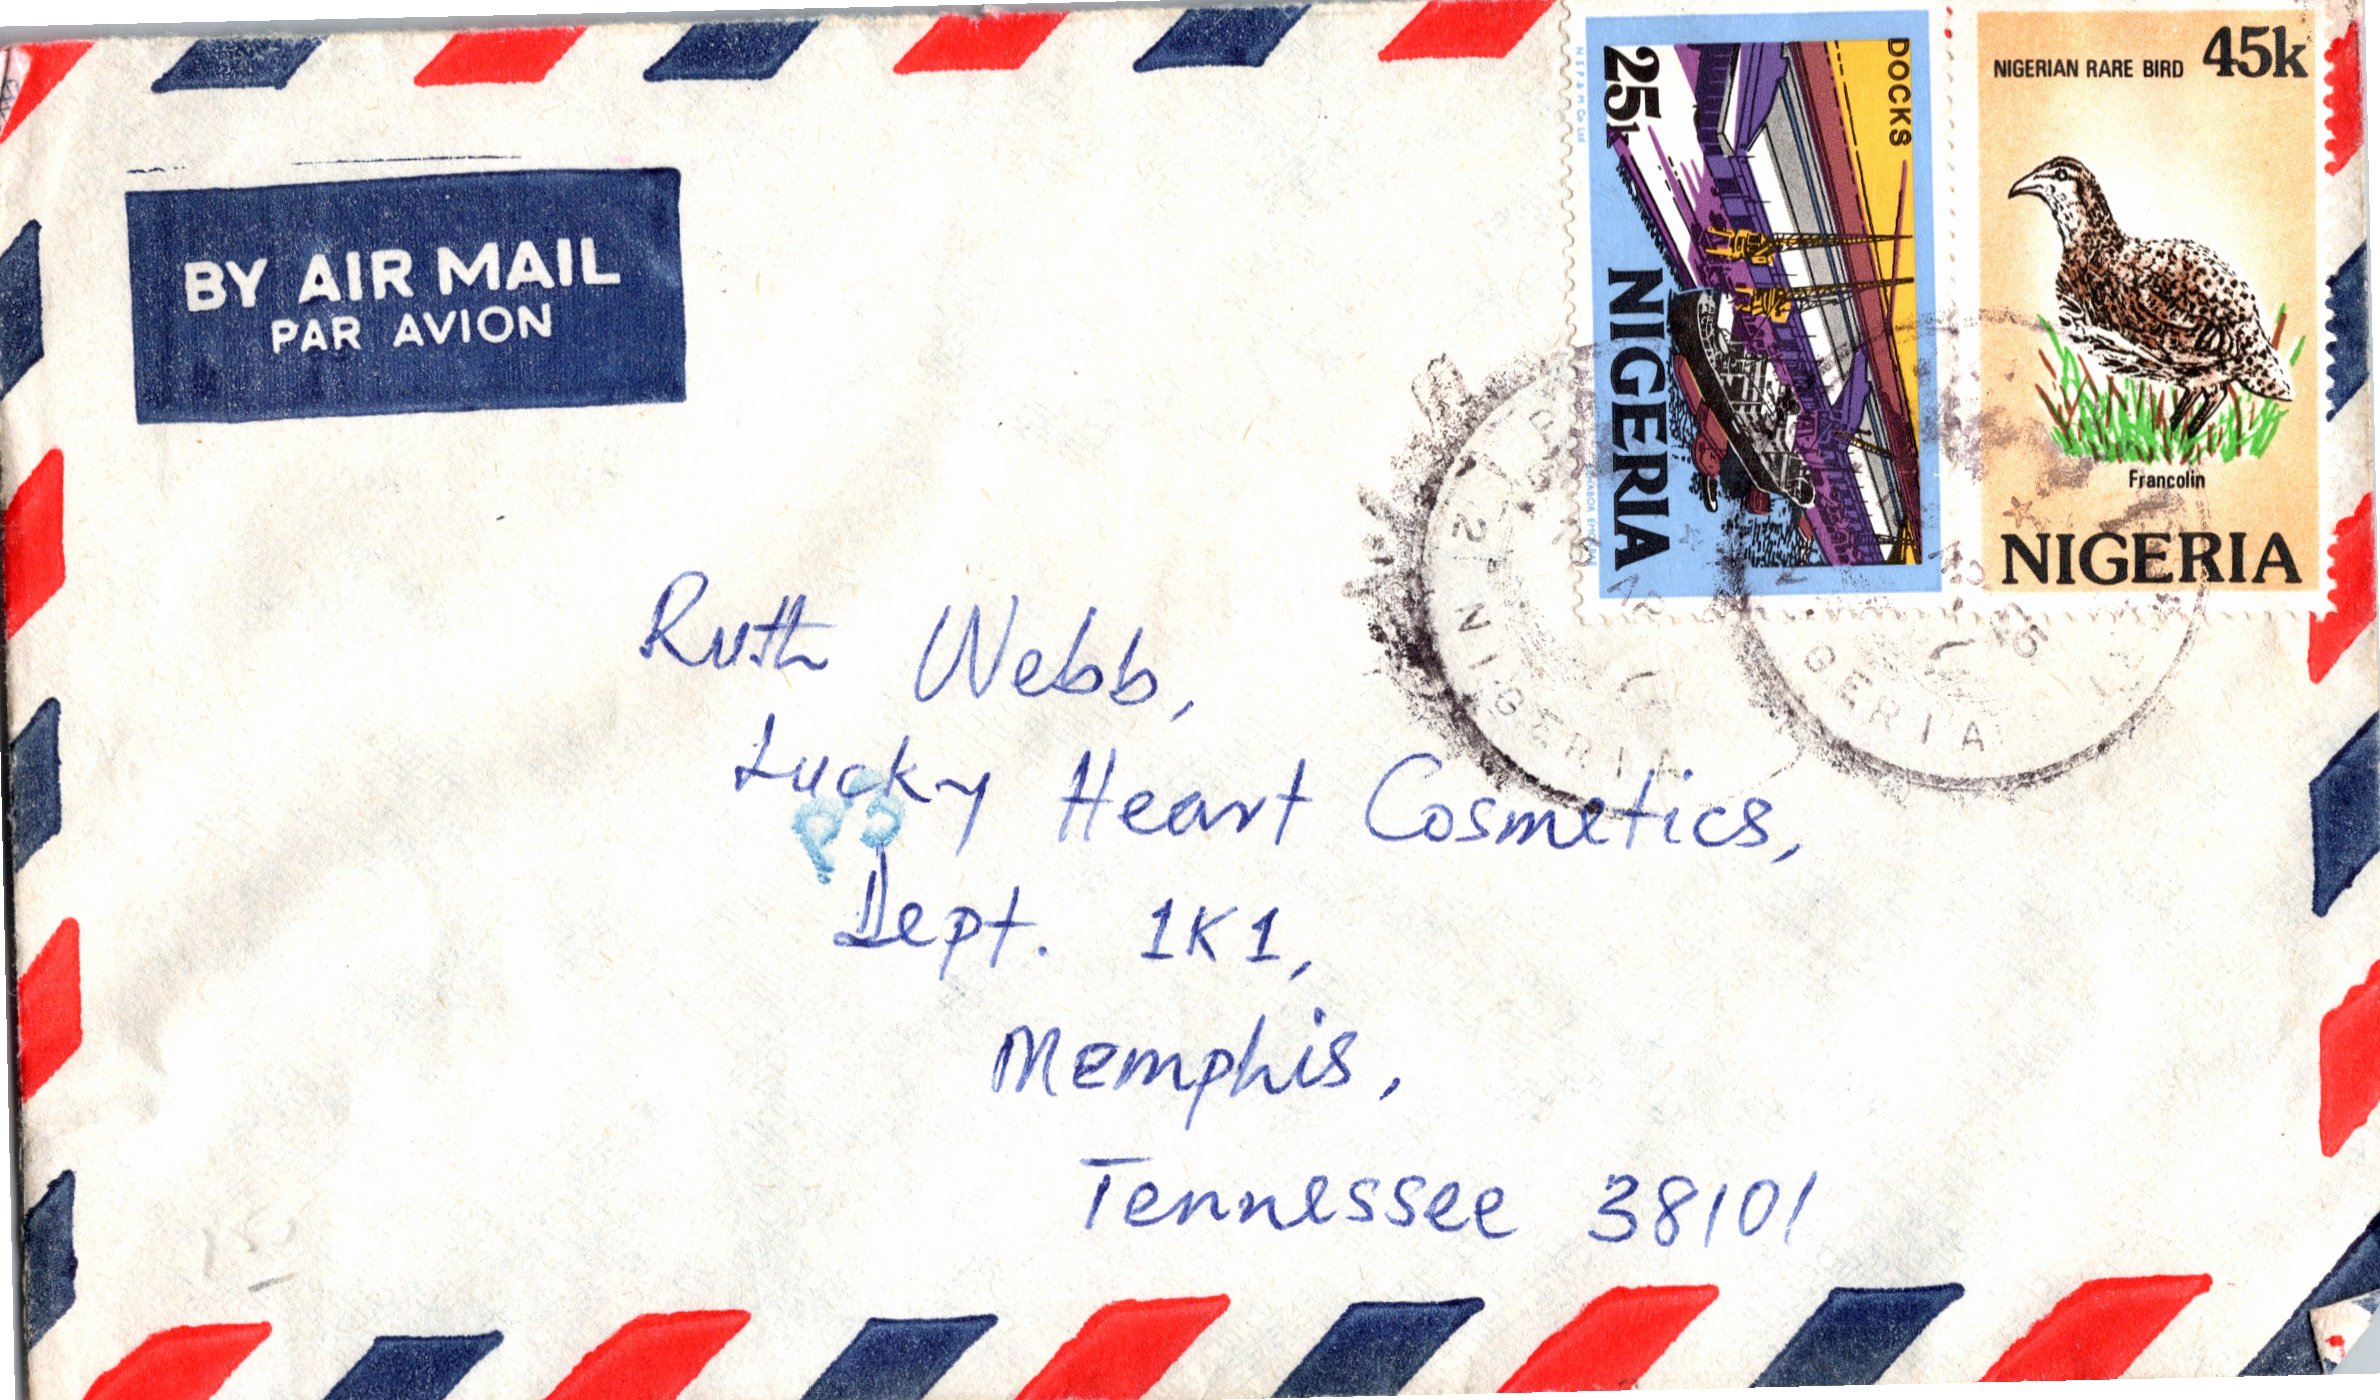 BY AIR MAIL
PAR AVION
DOCKS
25k
NIGERIA
N S P & M Co Ltd
NIGERIAN RARE BIRD 45k
Francolin
NIGERIA
NIGERIA
GERIA
Ruth Webb,
Lucky Heart Cosmetics,
Dept. 1K1,
Memphis,
Tennessee 38101